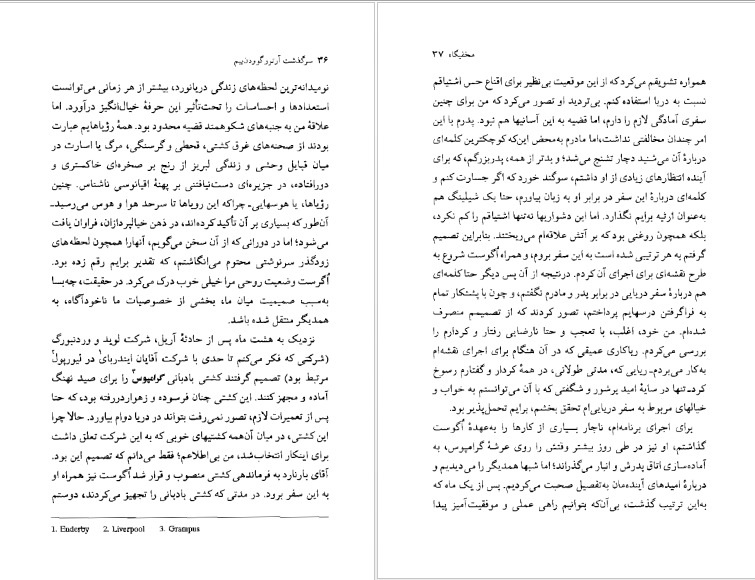 ۳۶ سرگذشت آرتور گوردن‌پیم
نومیدانه‌ترین لحظه‌های زندگی دریانورد، بیشتر از هر زمانی می‌توانست
استعدادها و احساسات را تحت‌تأثیر این حرفهٔ خیال‌انگیز درآورد. اما
علاقهٔ من به جنبه‌های شکوهمند قضیه محدود بود. همهٔ رؤیاهایم عبارت
بودند از صحنه‌های غرق کشتی، قحطی و گرسنگی، مرگ یا اسارت در
میان قبایل وحشی و زندگی لبریز از رنج بر صخره‌ای خاکستری و
دورافتاده، در جزیره‌ای دست‌نیافتنی بر پهنهٔ اقیانوسی ناشناس. چنین
رؤیاها، یا هوسهایی‌ـ چراکه این رویاها تا سرحد هوا و هوس می‌رسیدـ
آن‌طور که بسیاری بر آن تأکید کرده‌اند، در ذهن خیالپردازان، فراوان یافت
می‌شود؛ اما در دورانی که از آن سخن می‌گویم، آنهارا همچون لحظه‌های
زودگذر سرنوشتی محتوم می‌انگاشتم، که تقدیر برایم رقم زده بود.
اُگوست وضعیت روحی مرا خیلی خوب درک می‌کرد. در حقیقت، چه‌بسا
به‌سبب صمیمیت میان ما، بخشی از خصوصیات ما ناخودآگاه، به
همدیگر منتقل شده باشد.
نزدیک به هشت ماه پس از حادثهٔ آریل، شرکت لوید و وردنبورگ
(شرکتی که فکر می‌کنم تا حدی با شرکت آقایان ایندربای۱ در لیورپول۲
مرتبط بود) تصمیم گرفتند کشتی بادبانی گرامپوس۳ را برای صید نهنگ
آماده و مجهز کنند. این کشتی چنان فرسوده و زهواردررفته بود، که حتا
پس از تعمیرات لازم، تصور نمی‌رفت بتواند در دریا دوام بیاورد. حالا چرا
این کشتی، در میان آن‌همه کشتیهای خوبی که به این شرکت تعلق داشت
برای اینکار انتخاب‌شد، من بی‌اطلاعم؛ فقط می‌دانم که تصمیم این بود.
آقای بارنارد به فرماندهی کشتی منصوب و قرار شد اُگوست نیز همراه او
به این سفر برود. در مدتی که کشتی بادبانی را تجهیز می‌کردند، دوستم
1. Enderby 2. Liverpool 3. Grampus
مخفیگاه ۳۷
همواره تشویقم می‌کرد که از این موقعیت بی‌نظیر برای اقناع حس اشتیاقم
نسبت به دریا استفاده کنم. بی‌تردید او تصور می‌کرد که من برای چنین
سفری آمادگی لازم را دارم، اما قضیه به این آسانیها هم نبود. پدرم با این
امر چندان مخالفتی نداشت، اما مادرم به‌محض این‌که کوچکترین کلمه‌ای
دربارهٔ آن می‌شنید دچار تشنج می‌شد؛ و بدتر از همه، پدربزرگم، که برای
آینده انتظارهای زیادی از او داشتم، سوگند خورد که اگر جسارت کنم و
کلمه‌ای دربارهٔ این سفر در برابر او به زبان بیاورم، حتا یک شیلینگ هم
به‌عنوان ارثیه برایم نگذارد. اما این دشواریها نه‌تنها اشتیاقم را کم نکرد،
بلکه همچون روغنی بود که بر آتش علاقه‌ام می‌ریختند. بنابراین تصمیم
گرفتم به هر ترتیبی شده است به این سفر بروم، و همراه اُگوست شروع به
طرح نقشه‌ای برای اجرای آن کردم. درنتیجه از آن پس دیگر حتا کلمه‌ای
هم دربارهٔ سفر دریایی در برابر پدر و مادرم نگفتم، و چون با پشتکار تمام
به فراگرفتن درسهایم پرداختم، تصور کردند که از تصمیمم منصرف
شده‌ام. من خود، اغلب، با تعجب و حتا نارضایی رفتار و کردارم را
بررسی می‌کردم. ریاکاری عمیقی که در آن هنگام برای اجرای نقشه‌ام
به‌کار می‌بردم‌ـ ریایی که، مدتی طولانی، در همهٔ کردار و گفتارم رسوخ
کردـ تنها در سایهٔ امید پرشور و شگفتی که با آن می‌توانستم به خواب و
خیالهای مربوط به سفر دریایی‌ام تحقق بخشم، برایم تحمل‌پذیر بود.
برای اجرای برنامه‌ام، ناچار بسیاری از کارها را به‌عهدهٔ اُگوست
گذاشتم، او نیز در طی روز بیشتر وقتش را روی عرشهٔ گرامپوس، به
آماده‌سازی اتاق پدرش و انبار می‌گذراند؛ اما شبها همدیگر را می‌دیدیم و
دربارهٔ امیدهای آینده‌مان به‌تفصیل صحبت می‌کردیم. پس از یک ماه که
به‌این ترتیب گذشت، بی‌آن‌که بتوانیم راهی عملی و موفقیت‌آمیز پیدا